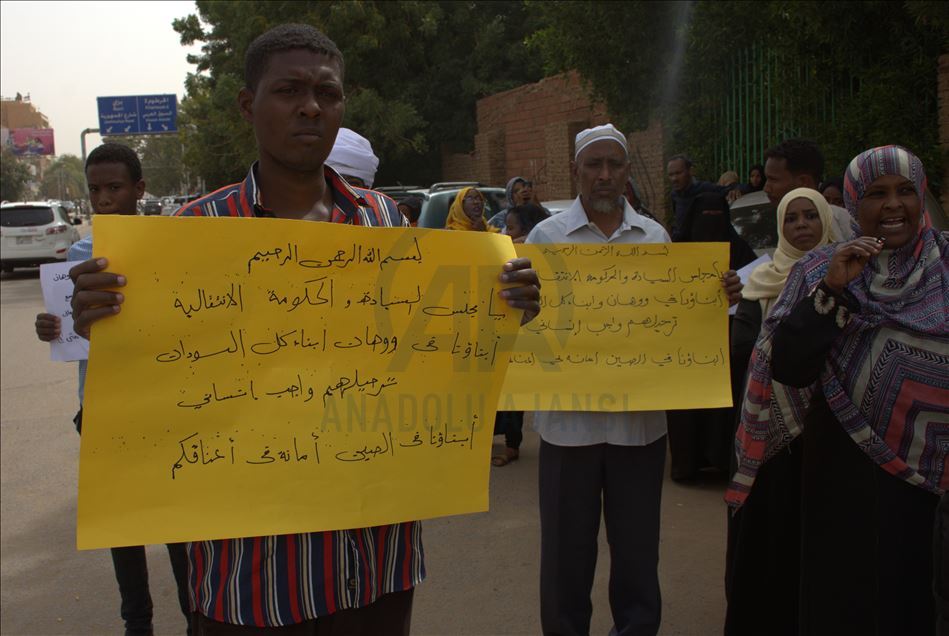 بسم الله الرحمن الرحيم
يا مجلس السيادة والحكومة الانتقالية
أبناؤنا في ووهان أبناء كل السودان
ترحيلهم واجب إنساني
أبناؤنا في الصين أمانة في أعناقكم
بسم الله الرحمن الرحيم
يا مجلس السيادة والحكومة الانتقا
أبناؤنا في ووهان وأبناء كل
ترحيلهم واجب إنساني
أبناؤنا في الصين أمانة في أعنا
ووهان
الخرطوم
بري
شارع الجمهورية
AA
ANADOLU AJANSI